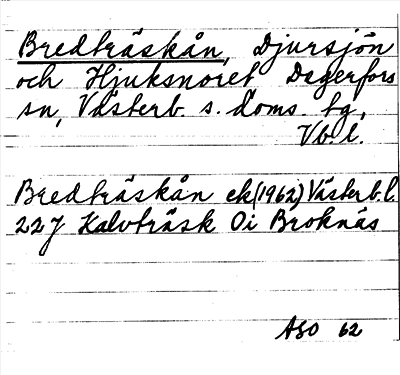 Bredträskån, Djursjön
och Hjuksnoret Degerfors
sn, Västerb. s. doms. tg,
Vb. l.
Bredträskån ek (1962) Västerb. l.
22J Kalvträsk 0i Broknäs
ASO 62